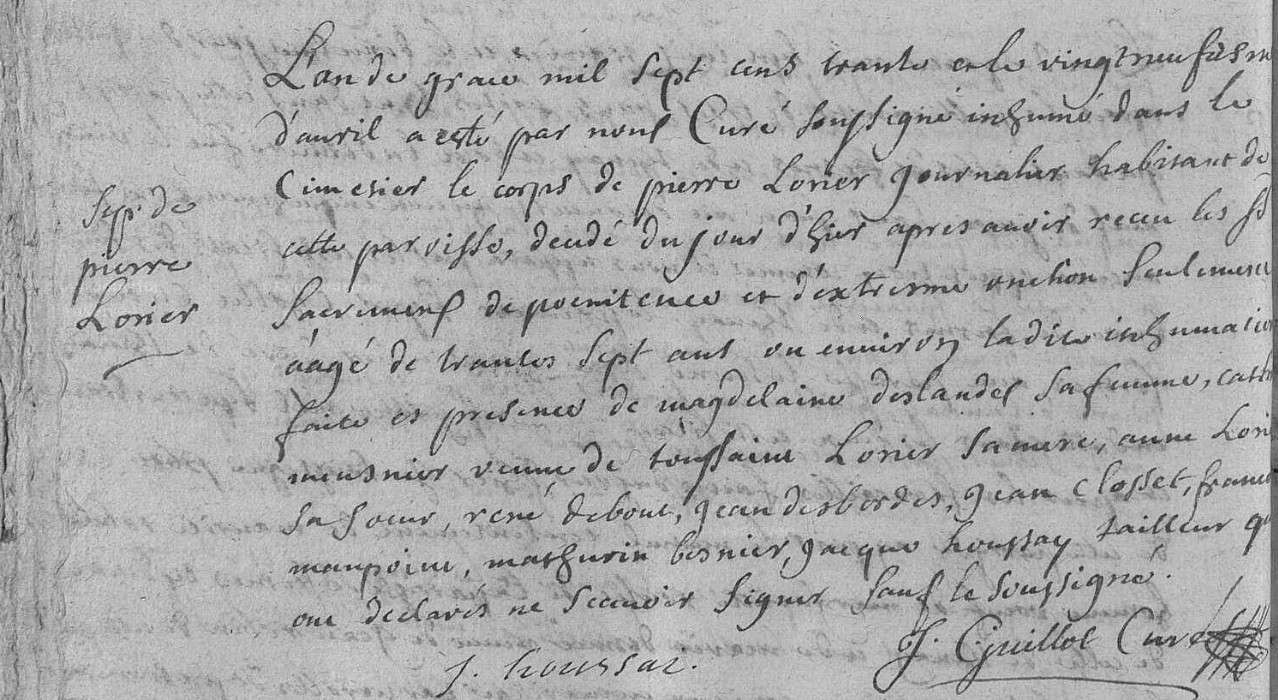 L'an de grace mil sept cens trante et le vingtneufiesme
d'auril a esté par nous Curé soussigné inhumé dans le
Cimetier le corps de pierre Lorier journalier habitant de
cette parroisse, decedé du jour d'hier apres auoir receu les
sacremens de poenitence et d'extresme onction seulement
aagé de trantes sept ans ou enuiron ladite inhumation
faite es presence de magdelaine deslandes sa femme,
meusnier veuue de toussaint Lorier sa mere, anne Lorier
sa soeur, rené debout, jean desbordes, jean Closset,
maupoint, mathurin besnier, jacque houssay tailleur
ont declarés ne scauoir signer sauf le soussigné.
sep. de
pierre
Lorier
J. houssai.
J. Guillot Curé